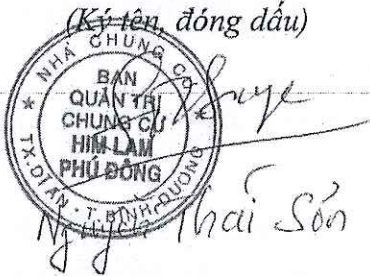 (Ký tên, đóng dấu)
NHÀ CHUNG CƯ
BAN
QUẢN TRỊ
CHUNG CƯ
HIM LAM
PHÚ ĐÔNG
TX.DĨ AN - T. BÌNH DƯƠNG
Nguyễn Thái Sơn